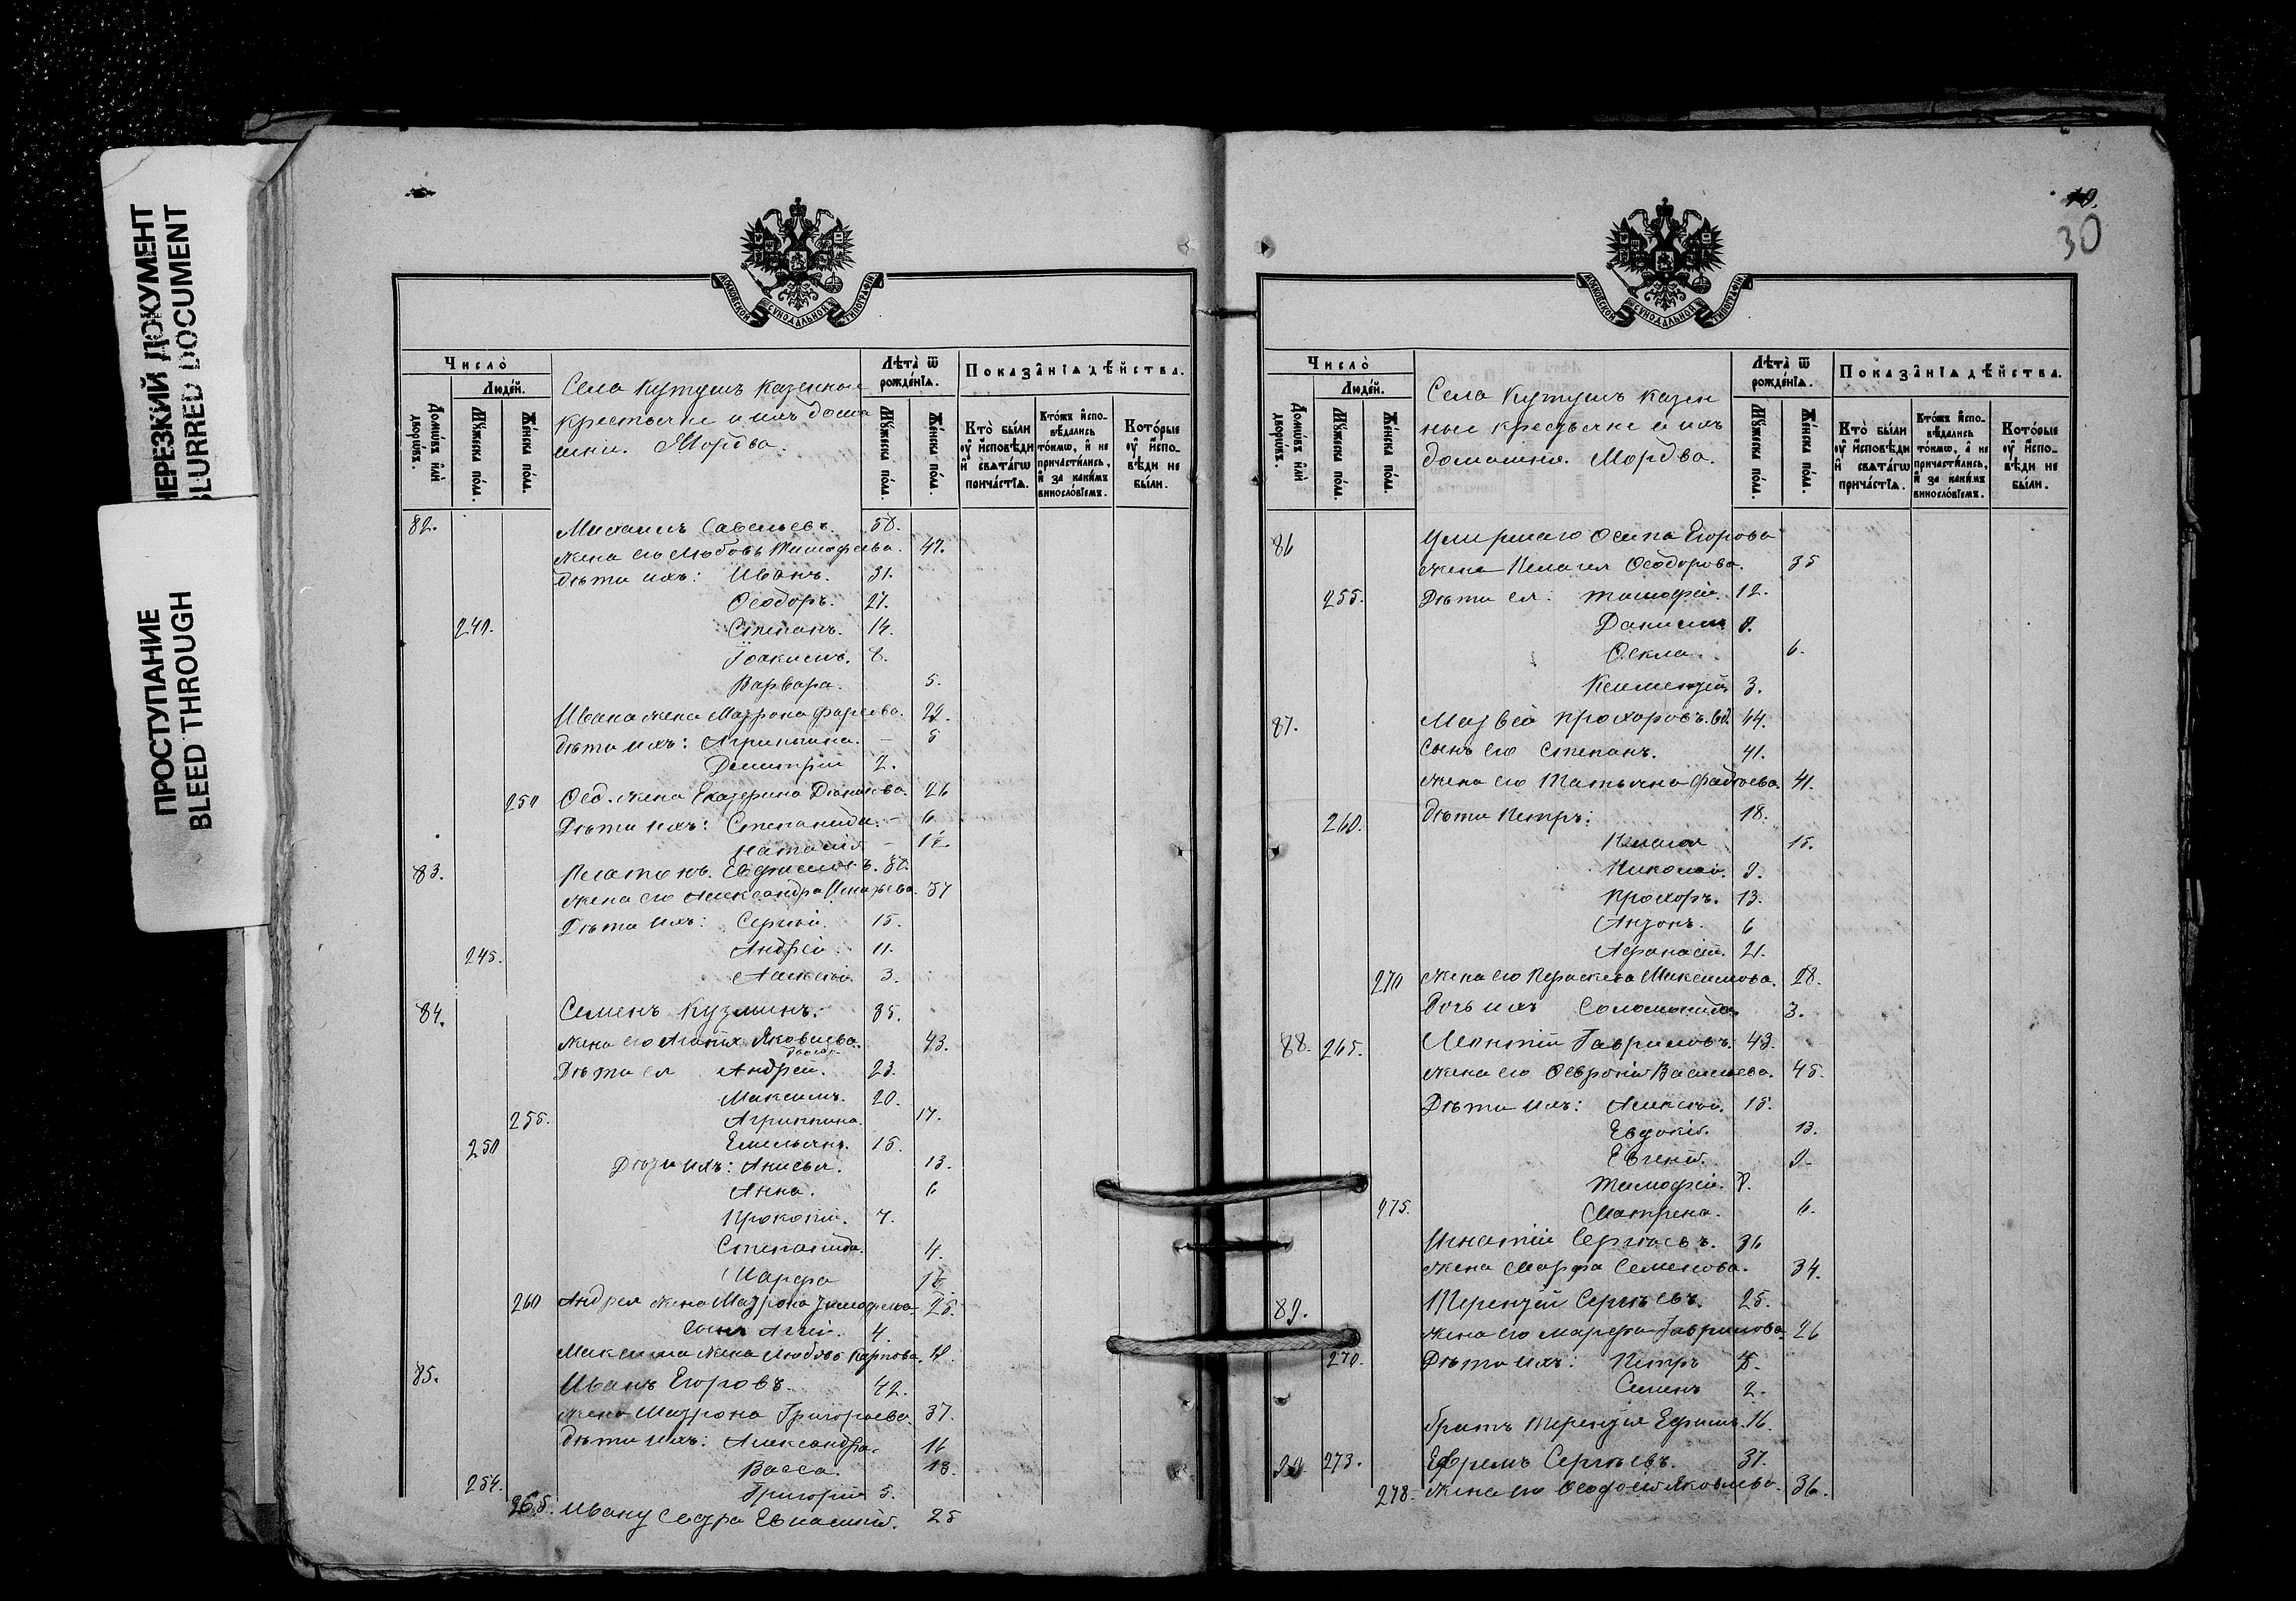 НЕРЕЗКИЙ ДОКУМЕНТ
BLURRED DOCUMENT
ПРОСТУПАНИЕ
BLEED THROUGH
МОСКОВСКОЙ СѴНОДАЛЬНОЙ ТИПОГРАФІИ
Число̀
Люде́й.
Домѡ́въ и҆лѝ дворѡ́въ.
Мꙋ́жеска по́ла.
Же́нска по́ла.
Села Кутушъ казенные
крестьяне и ихъ дома
шніе. Мордва.
Лѣта̀ ѿ рожде́нїѧ.
Мꙋ́жеска по́ла.
Же́нска по́ла.
Показа̑нїѧ дѣ́йства.
Кто̀ бы́ли оу҆ и҆сповѣди и҆ свѧта́гѡ прича́стїѧ.
Кто́жъ и҆сповѣдались то́кмѡ, а҆ не причасти́лись, и҆ за каки́мъ винословїемъ.
Кото́рые оу҆ и҆сповѣди не бы́ли.
82. Михаилъ Савельевъ. 58.
жена его Любовь Тимофеева. 47.
дѣти ихъ: Иванъ. 31.
Ѳеодоръ. 27.
240. Степанъ. 14.
Іоакимъ. 8.
Варвара. 5.
Ивана жена Матрона 22.
дѣти ихъ: Агрипина. – 5
Димитрій 2.
250 Ѳед. жена Екатерина 26
Дѣти ихъ: Степанида. – 6
Наталія –
83. Платонъ. Евфимовъ.
жена его Александра Игнатьева. 37
Дѣти ихъ: Сергѣй. 15.
245. Андрей. 11.
Алексѣй. 3.
84. Семенъ Кузминъ. 35.
жена его Яковлева. 43.
Дѣти ея Андрей. 23.
Максимъ. 20.
255. Агрипина. 17.
250 Емельянъ. 15.
Дѣти ихъ: Анисья. 13.
Анна. 6
Прокопій. 7.
Степанида. 4.
Марфа
260 Андрея жена Матрона Тимофеева. 25.
Сынъ 4.
Максима жена Любовь Карпова.
85. Иванъ Егоровъ. 42.
жена Матрона Григорьева. 37.
дѣти ихъ: Александра. 16
Васса. 13.
254. Григорій 5.
265. Ивану сестра 25
30
МОСКОВСКОЙ СѴНОДАЛЬНОЙ ТИПОГРАФІИ
Число̀
Люде́й.
Домѡ́въ и҆лѝ дворѡ́въ.
Мꙋ́жеска по́ла.
Же́нска по́ла.
Села Кутушъ казен
ные крестьяне и ихъ
домашніе. Мордва.
Лѣта̀ ѿ рожде́нїѧ.
Мꙋ́жеска по́ла.
Же́нска по́ла.
Показа̑нїѧ дѣ́йства.
Кто̀ бы́ли оу҆ и҆сповѣди и҆ свѧта́гѡ прича́стїѧ.
Кто́жъ и҆сповѣдались то́кмѡ, а҆ не причасти́лись, и҆ за каки́мъ винословїемъ.
Кото́рые оу҆ и҆сповѣди не бы́ли.
86 Умершаго Осипа Егорова
жена Пелагея Ѳеодорова. 35
255. Дѣти ея: Тимофей. 12.
Даниилъ 8.
Ѳекла. 6.
Климентій 3.
87. Матвей Прохоровъ. вд. 44.
Сынъ его Степанъ. 41.
жена его Татьяна Фадеева. 41.
260. дѣти Петръ: 18.
Пелагея 15.
Николай. 9.
Прохоръ. 13.
Антонъ. 6
Афанасій. 21.
270 жена его Параскева Максимова. 28.
Дочь ихъ Соломонида 3.
88. 265. Леонтій Гавриловъ. 43.
жена его Ѳеврония Васильева. 45.
Дѣти ихъ: Алексѣй. 15.
Евдокія. 13.
Евгенія. 9.
Тимофей. 8.
275. Матрена. 6.
Игнатій Сергѣевъ. 36
жена Марфа Семенова. 34.
89. Терентій Сергѣевъ. 25.
жена его Марфа Гаврилова. 26
270. Дѣти ихъ: Петръ
Семенъ 2.
братъ Терентія Ефимъ. 16.
90 273. Ефремъ Сергѣевъ. 37.
278. жена его Яковлева. 36.